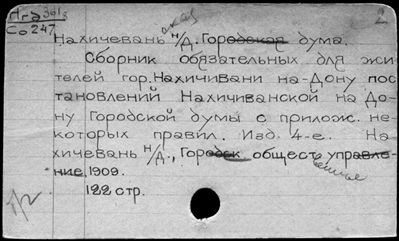 Нгд 3018
Со 247
Нахичевань н/Д. Городская дума.
Сборник обязательных для жи
телей гор. Нахичивани на-Дону пос
тановлений Нахичиванской на До-
ну Городской думы с прилож. не-
которых правил. Изд. 4-е. На
хичевань н/Д., Городск общест управле-
ние, 1909.
122 стр.